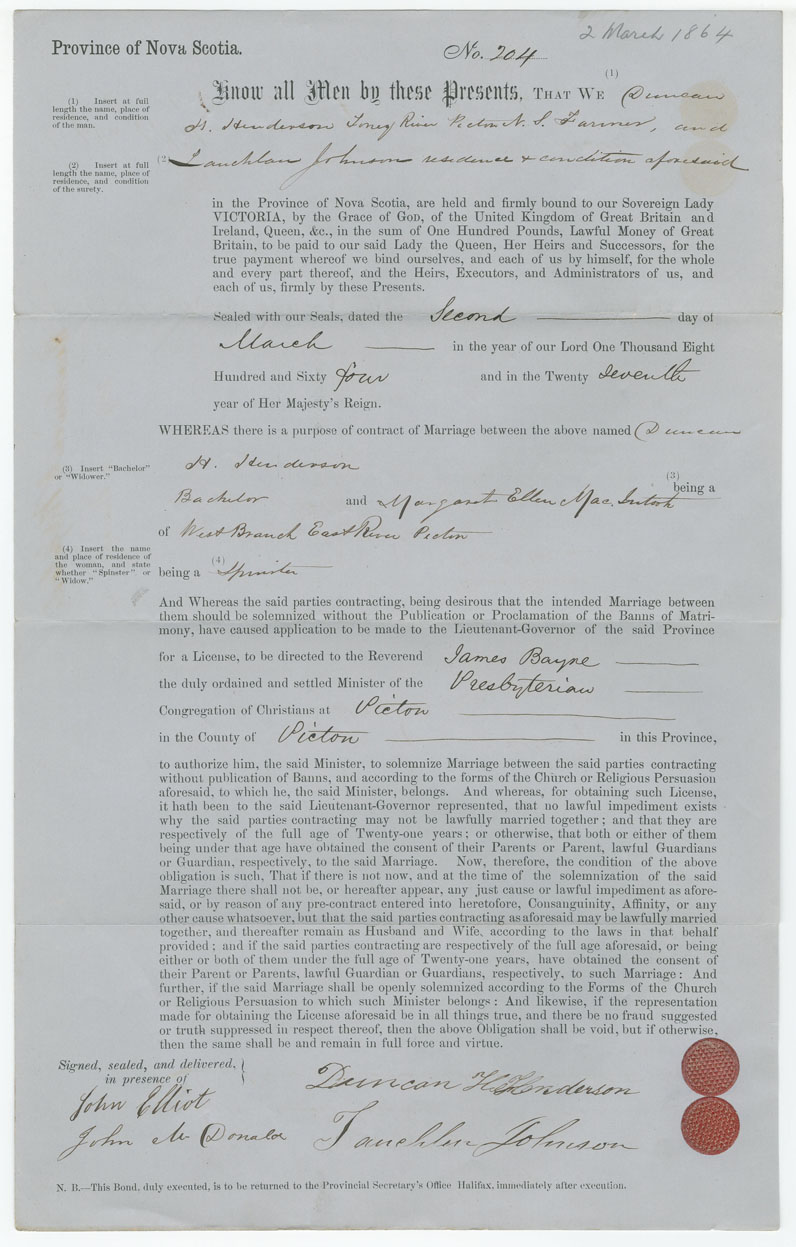 2 March 1864
Province of Nova Scotia.
No. 204
(1)
Know all Men by these Presents, THAT WE Duncan
(1) Insert at full
length the name, place of
residence, and condition
of the man.
H. Henderson Toney River Pictou N. S. Farmer, and
(2) Insert at full
length the name, place of
residence, and condition
of the surety.
(2 Lauchlan Johnson residence & condition aforesaid
in the Province of Nova Scotia, are held and firmly bound to our Sovereign Lady
VICTORIA, by the Grace of GOD, of the United Kingdom of Great Britain and
Ireland, Queen, &c., in the sum of One Hundred Pounds, Lawful Money of Great
Britain, to be paid to our said Lady the Queen, Her Heirs and Successors, for the
true payment whereof we bind ourselves, and each of us by himself, for the whole
and every part thereof, and the Heirs, Executors, and Administrators of us, and
each of us, firmly by these Presents.
Sealed with our Seals, dated the Second day of
March in the year of our Lord One Thousand Eight
Hundred and Sixty four and in the Twenty Seventh
year of Her Majesty's Reign.
WHEREAS there is a purpose of contract of Marriage between the above named Duncan
(3) Insert "Bachelor"
or "Widower."
H. Henderson
(3)
being a
Bachelor and Margaret Ellen Mac. Intosh
of West Branch East River Pictou
(4) Insert the name
and place of residence of
the woman, and state
whether "Spinster" or
"Widow."
being a (4) Spinster
And Whereas the said parties contracting, being desirous that the intended Marriage between
them should be solemnized without the Publication or Proclamation of the Banns of Matri-
mony, have caused application to be made to the Lieutenant-Governor of the said Province
for a License, to be directed to the Reverend James Bayne
the duly ordained and settled Minister of the Presbyterian
Congregation of Christians at Pictou
in the County of Pictou in this Province,
to authorize him, the said Minister, to solemnize Marriage between the said parties contracting
without publication of Banns, and according to the forms of the Church or Religious Persuasion
aforesaid, to which he, the said Minister, belongs. And whereas, for obtaining such License,
it hath been to the said Lieutenant-Governor represented, that no lawful impediment exists
why the said parties contracting may not be lawfully married together; and that they are
respectively of the full age of Twenty-one years; or otherwise, that both or either of them
being under that age have obtained the consent of their Parents or Parent, lawful Guardians
or Guardian, respectively, to the said Marriage. Now, therefore, the condition of the above
obligation is such, That if there is not now, and at the time of the solemnization of the said
Marriage there shall not be, or hereafter appear, any just cause or lawful impediment as afore-
said, or by reason of any pre-contract entered into heretofore, Consanguinity, Affinity, or any
other cause whatsoever, but that the said parties contracting as aforesaid may be lawfully married
together, and thereafter remain as Husband and Wife, according to the laws in that behalf
provided; and if the said parties contracting are respectively of the full age aforesaid, or being
either or both of them under the full age of Twenty-one years, have obtained the consent of
their Parent or Parents, lawful Guardian or Guardians, respectively, to such Marriage: And
further, if the said Marriage shall be openly solemnized according to the Forms of the Church
or Religious Persuasion to which such Minister belongs: And likewise, if the representation
made for obtaining the License aforesaid be in all things true, and there be no fraud suggested
or truth suppressed in respect thereof, then the above Obligation shall be void, but if otherwise,
then the same shall be and remain in full force and virtue.
Signed, sealed, and delivered,
in presence of
Duncan H Henderson
John Elliot
John Mc Donald Lauchlen Johnson
N. B.—This Bond, duly executed, is to be returned to the Provincial Secretary's Office Halifax, immediately after execution.